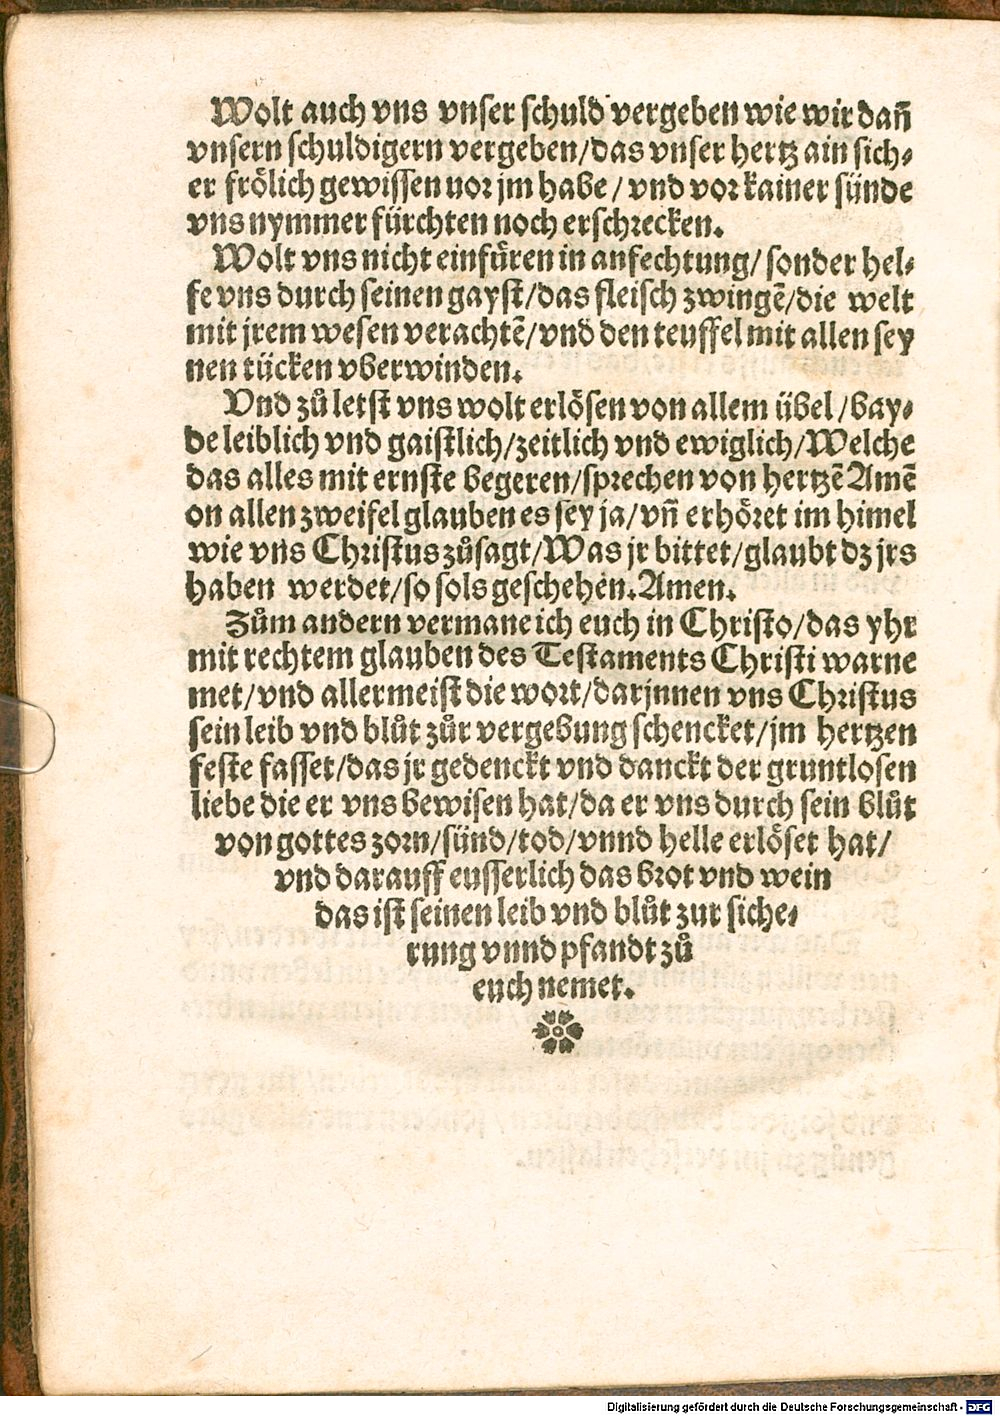 Wolt auch vns vnser schuld vergeben wie wir dañ
vnsern schuldigern vergeben/das vnser hertz ain sich⸗
er frölich gewissen uor jm habe / vnd vor kainer sünde
vns nymmer fürchten noch erschrecken.
Wolt vns nicht einfüren in anfechtung/ sonder hel⸗
fe vns durch seinen gayst/das fleisch zwingẽ/die welt
mit jrem wesen verachtẽ/vnd den teuffel mit allen sey
nen tücken vberwinden.
Vnd zů letst vns wolt erlösen von allem übel/bay⸗
de leiblich vnd gaistlich/zeitlich vnd ewiglich/Welche
das alles mit ernste begeren/sprechen von hertzẽ Amẽ
on allen zweifel glauben es sey ja/vñ erhöret im himel
wie vns Christus zůsagt/Was jr bittet/glaubt dz jrs
haben werdet/so sols geschehen.Amen.
Zům andern vermane ich euch in Christo/das yhr
mit rechtem glauben des Testaments Christi warne
met/vnd allermeist die wort/darjnnen vns Christus
sein leib vnd blůt zůr vergebung schencket/jm hertzen
feste fasset/das jr gedenckt vnd danckt der gruntlosen
liebe die er vns bewisen hat/da er vns durch sein blůt
von gottes zorn/sünd/tod/vnnd helle erlöset hat/
vnd darauff eusserlich das brot vnd wein
das ist seinen leib vnd blůt zur siche⸗
rung vnnd pfandt zů
euch nemet.
Digitalisierung gefördert durch die Deutsche Forschungsgemeinschaft - DFG